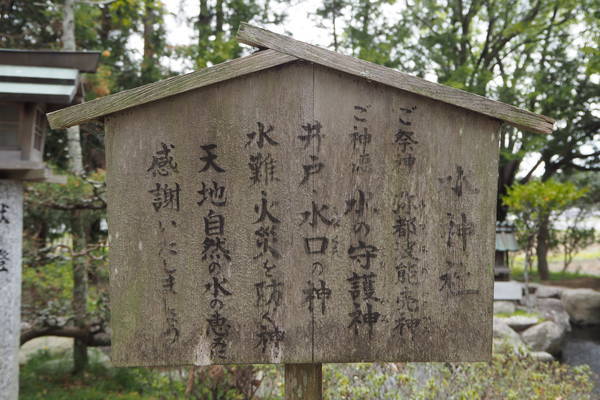 水神社
ご祭神 弥都波能売神
ご神徳 水の守護神
井戸・水口の神
水難・火災を防ぐ神
天地自然の水の恵みに
感謝いたしましょう
献燈